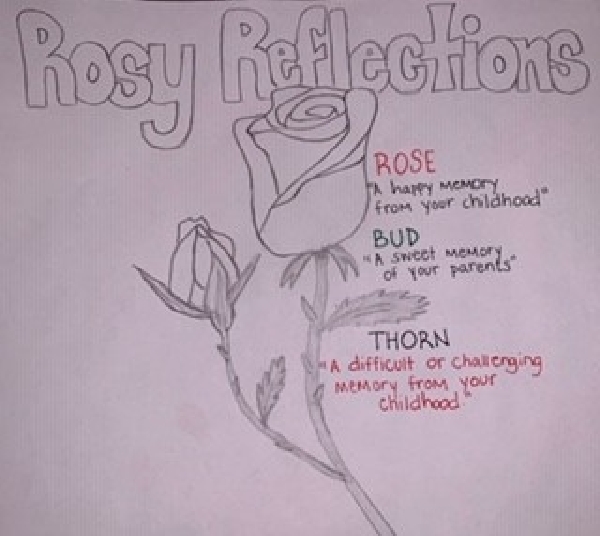 Rosy Reflections
ROSE
"A happy memory
from your childhood"
BUD
"A sweet memory
of your parents"
THORN
"A difficult or challenging
memory from your
childhood"